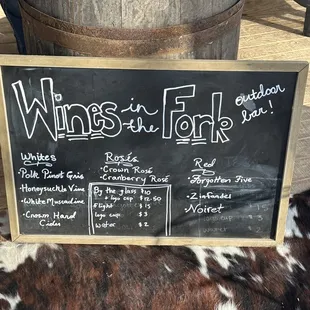 Wines in the Fork
outdoor bar!
Whites
Polk Pinot Gris
Honeysuckle Vine
White Muscadine
Crown Hard Cider
Rosés
Crown Rosé
Cranberry Rosé
By the glass $10
+ logo cup $12.50
flight $15
logo cup $3
water $2
Red
Forgotten Five
Zinfandel
Noiret